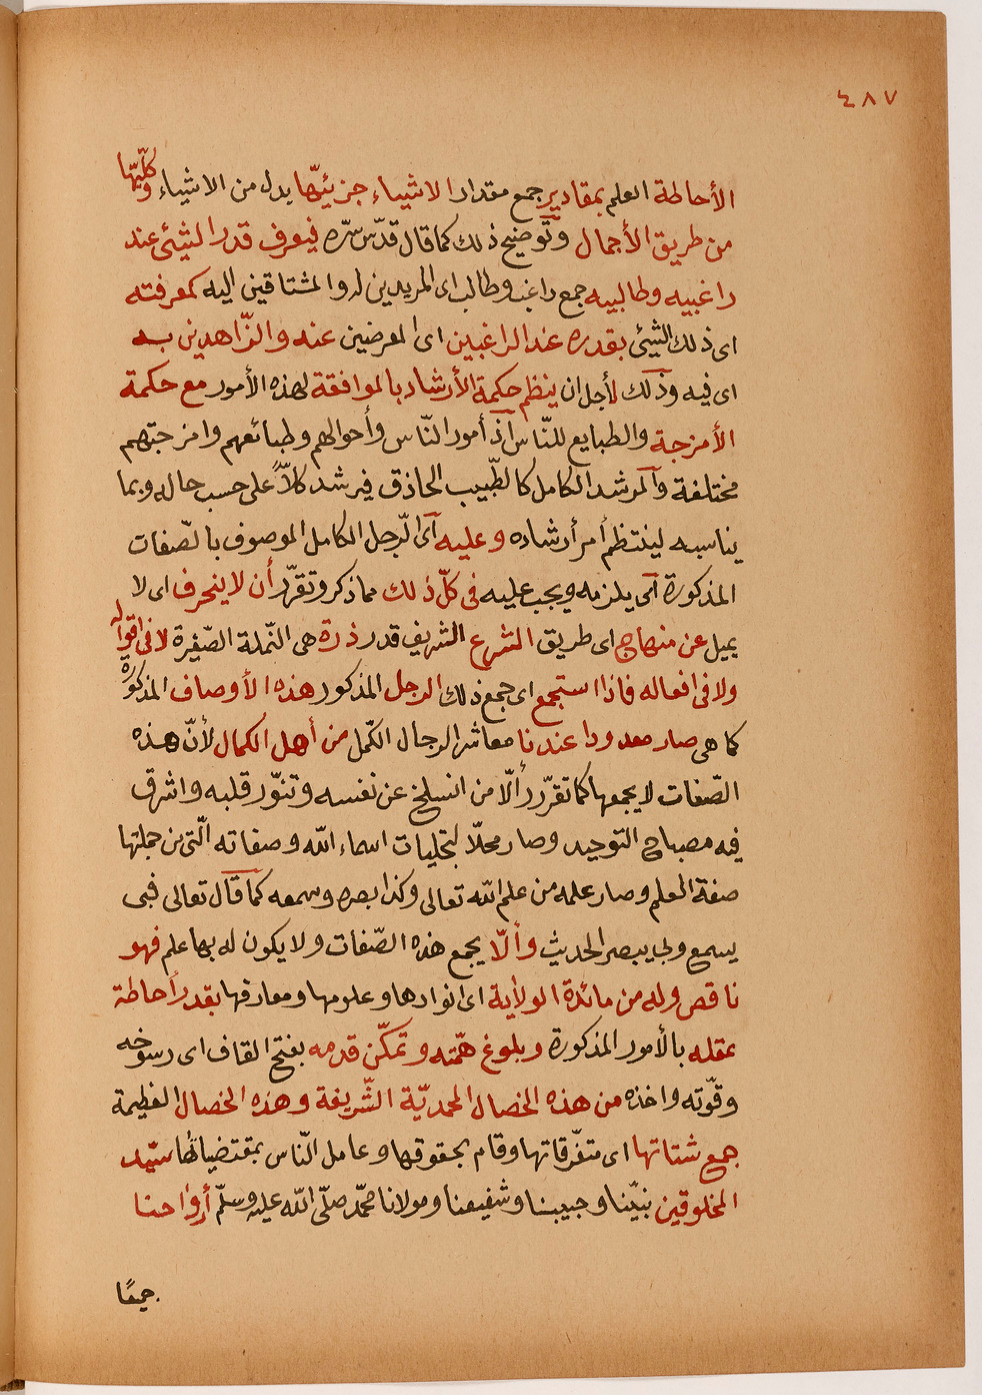 ٤٨٧
الأحاطة العلم بمقادير جمع مقدار الاشياء جزئيّها يدل من الاشياء وكلّيّها
من طريق الأجمال وتوضيح ذلك كما قال قدّس سرّه فيعرف قدر الشيئ عند
راغبيه وطالبيه جمع راغب وطالب اى المريدين له والمشتاقين اليه كمعرفته
اى ذلك الشيئ بقدره عند الراغبين اى المعرضين عنه والزّاهدين به
اى فيه وذلك لأجل ان ينظم حكمة الأرشاد بالموافقة لهذه الأمور مع حكمة
الأمزجة والطبايع للنّاس اذ أمور النّاس وأحوالهم وطبائعهم وامزجتهم
مختلفة والمرشد الكامل كالطّبيب الحاذق فيرشد كلاًّ على حسب حاله وبما
يناسبه لينتظم أمر أرشاده وعليه اى الرّجل الكامل الموصوف بالصّفات
المذكورة اى يلزمه ويجب عليه فى كلّ ذلك مما ذكر وتقرّر أن لا ينحرف اى لا
يميل عن منهاج اى طريق الشرع الشريف قدر ذرة هى النّملة الصّغيرة لا فى اقواله
ولا فى افعاله فاذا استجمع اى جمع ذلك الرجل المذكور هذه الأوصاف المذكورة
كما هى صار معدودا عندنا معاشر الرجال الكمّل من أهل الكمال لأنّ هذه
الصّفات لا يجمعها كما تقرّر ألّا من انسلخ عن نفسه وتنوّر قلبه واشرق
فيه مصباح التوحيد وصار محلّا لتجليات اسماء الله وصفاته الّتى من جملتها
صفة العلم وصار علمه من علم الله تعالى وكذا بصره وسمعه كما قال تعالى فبى
يسمع وبى يبصر الحديث وألّا يجمع هذه الصّفات ولا يكون له بها علم فهو
ناقص وله من مائدة الولاية اى انوارها وعلومها ومعارفها بقدر أحاطة
عقله بالأمور المذكورة وبلوغ همّته وتمكّن قدمه بفتح القاف اى رسوخه
وقوّته واخذه من هذه الخصال المحمديّة الشّريفة وهذه الخصال العظيمة
جمع شتاتها اى متفرّقاتها وقام بحقوقها وعامل النّاس بمقتضياتها سيّد
المخلوقين نبيّنا وحبيبنا وشفيعنا ومولانا محمّد صلّى الله عليه وسلّم أرواحنا
جميعًا